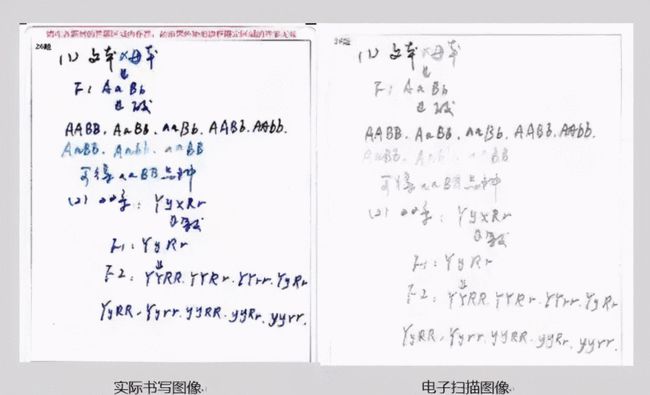 请在各题目的答题区域内作答，超出黑色矩形边框限定区域的答案无效
26题
(1) 父本×母本
F1: AaBb
自交
AABB、AaBb、aaBb、AABb、AAbb、
AaBB、Aabb、aaBB
可得aaBB品种
(2) YyxRr
F1: YyRr
F2: YYRR、YYRr、YYrr、YyRr
YyRR、Yyrr、yyRR、yyRr、yyrr.
实际书写图像
26题
(1) 父本×母本
F: AaBb
自交
AABB、AaBb、aaBb、AABb、AAbb.
AaBB、Aabb、aaBB
可得aaBB品种
(2) YyxRr
F1: YyRr
F2: YYRR、YYRr、YYrr、YyRr
YyRR、Yyrr、yyRR、yyRr、yyrr.
电子扫描图像